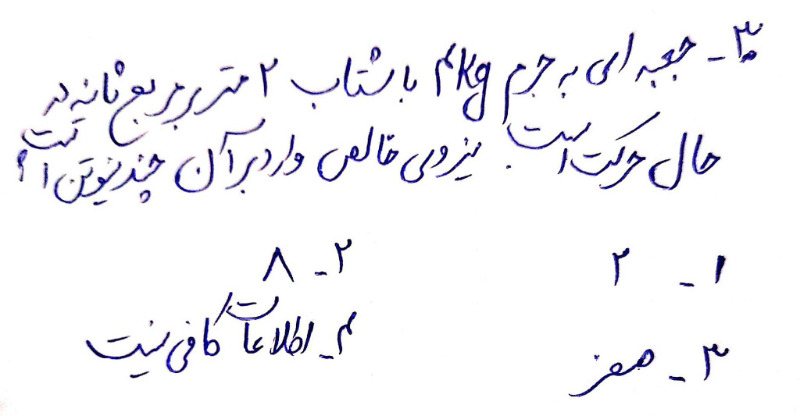 ۳- جعبه ای به جرم ۴kg با شتاب ۲ متر بر مربع ثانیه در
حال حرکت است. نیروی خالص وارد بر آن چند نیوتن است؟
۱- ۲
۲- ۸
۳- صفر
۴- اطلاعات کافی نیست